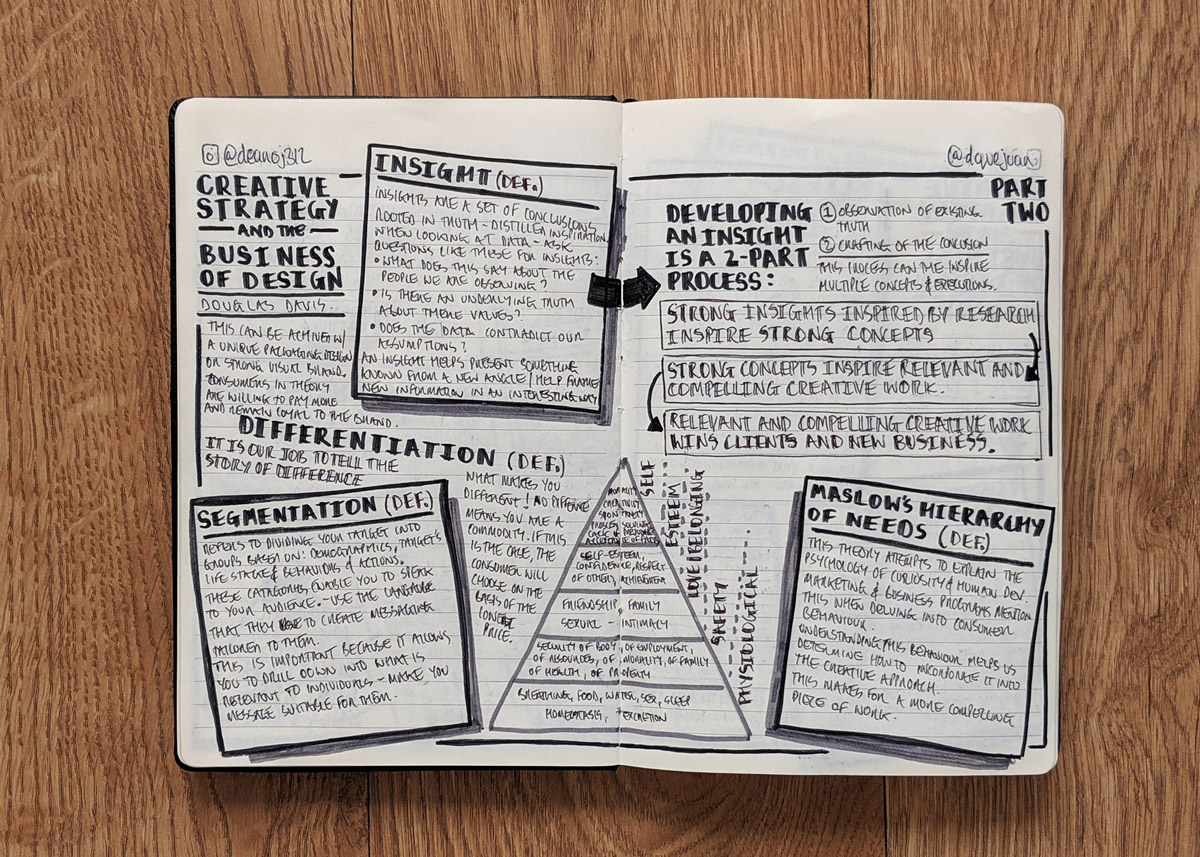 @deanoj312
CREATIVE
STRATEGY
AND THE
BUSINESS
OF DESIGN
DOUGLAS DAVIS..
THIS CAN BE ACHIVEN W/
A UNIQUE PACKAGING DESIGN
OR STRONG VISUAL BRAND.
CONSUMERS IN THEORY
ARE WILLING TO PAY MORE
AND REMAIN LOYAL TO THE BRAND.
INSIGHT (DEF.)
INSIGHTS ARE A SET OF CONCLUSIONS
ROOTED IN TRUTH - DISTILLED INSPIRATION.
WHEN LOOKING AT DATA - ASK
QUESTIONS LIKE THESE FOR INSIGHTS:
• WHAT DOES THIS SAY ABOUT THE
PEOPLE WE ARE OBSERVING?
• IS THERE AN UNDERLYING TRUTH
ABOUT THERE VALUES?
• DOES THE DATA CONTRADICT OUR
ASSUMPTIONS?
AN INSIGHT HELPS PRESENT SOMETHING
KNOWN FROM A NEW ANGLE / HELP FRAME
NEW INFORMATION IN AN INTERESTING WAY
DIFFERENTIATION (DEF.)
IT IS OUR JOB TO TELL THE
STORY OF DIFFERENCE
WHAT MAKES YOU
DIFFERENT! NO DIFFERENCE
MEANS YOU ARE A
COMMODITY. IF THIS
IS THE CASE, THE
CONSUMER WILL
CHOOSE ON THE
BASIS OF THE
LOWEST
PRICE.
SEGMENTATION (DEF.)
REFERS TO DIVIDING YOUR TARGET INTO
GROUPS BASED ON: DEMOGRAPHICS, TARGETS
LIFE STAGE & BEHAVIOURS & ACTIONS.
THESE CATAGORIES ENABLE YOU TO SPEAK
TO YOUR AUDIENCE. - USE THE LANGUAGE
THAT THEY USE TO CREATE MESSAGING
TAILORED TO THEM.
THIS IS IMPORTANT BECAUSE IT ALLOWS
YOU TO DRILL DOWN INTO WHAT IS
RELEVANT TO INDIVIDUALS - MAKE YOU
MESSAGE SUITABLE FOR THEM.
@dquejuan
PART
TWO
DEVELOPING
AN INSIGHT
IS A 2-PART
PROCESS:
1 OBSERVATION OF EXISTING
TRUTH
2 CRAFTING OF THE CONLUSION
THIS PROCESS CAN THE INSPIRE
MULTIPLE CONCEPTS & EXECUTIONS.
STRONG INSIGHTS INSPIRED BY RESEARCH
INSPIRE STRONG CONCEPTS
STRONG CONCEPTS INSPIRE RELEVANT AND
COMPELLING CREATIVE WORK.
RELEVANT AND COMPELLING CREATIVE WORK
WINS CLIENTS AND NEW BUSINESS.
MORALITY
CREATIVITY
SPONTANEITY
PROBLEM SOLVING
LACK OF PREJUDICE
ACCEPTANCE OF FACTS
SELF-ESTEEM,
CONFIDENCE, RESPECT
OF OTHERS, ACHIEVEMENT
FRIENDSHIP, FAMILY
SEXUAL - INTIMACY
SECURITY OF BODY, OF EMPLOYMENT,
OF RESOURCES, OF MORALITY, OF FAMILY
OF HEALTH, OF PROPERTY
BREATHING, FOOD, WATER, SEX, SLEEP
HOMEOTASIS, EXCRETION
SELF
ESTEEM
LOVE/BELONGING
SAFETY
PHYSIOLOGICAL
MASLOW'S HIERARCHY
OF NEEDS (DEF.)
THIS THEORY ATTEMPTS TO EXPLAIN THE
PSYCHOLOGY OF CURIOSITY & HUMAN DEV.
MARKETING & BUSINESS PROGRAMS MENTION
THIS WHEN DELVING INTO CONSUMER
BEHAVIOUR.
UNDERSTANDING THIS BEHAVIOUR HELPS US
DETERMINE HOW TO INCORPORATE IT INTO
THE CREATIVE APPROACH.
THIS MAKES FOR A MORE COMPELLING
PIECE OF WORK.